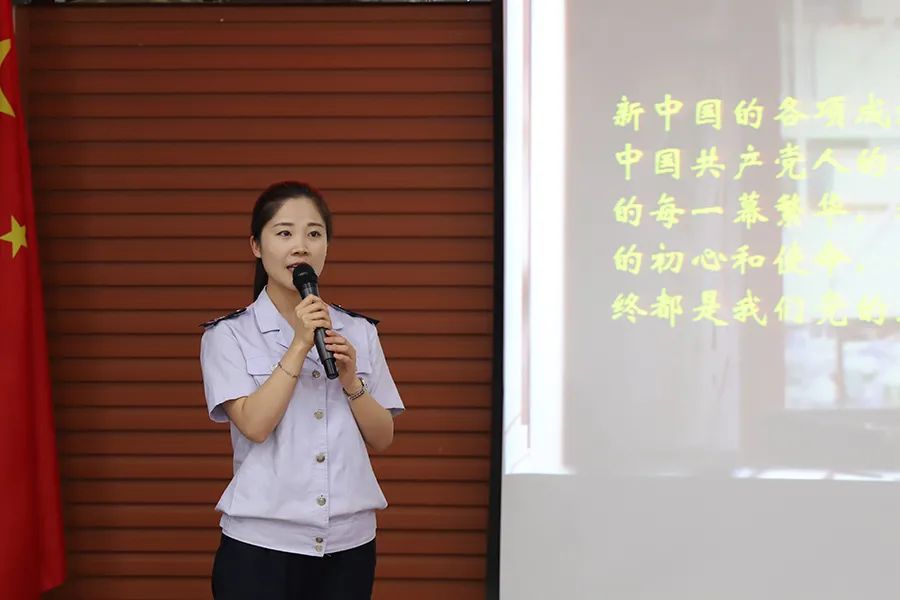 新中国的各项成
中国共产党人的
的每一幕繁华，
的初心和使命，
终都是我们党的